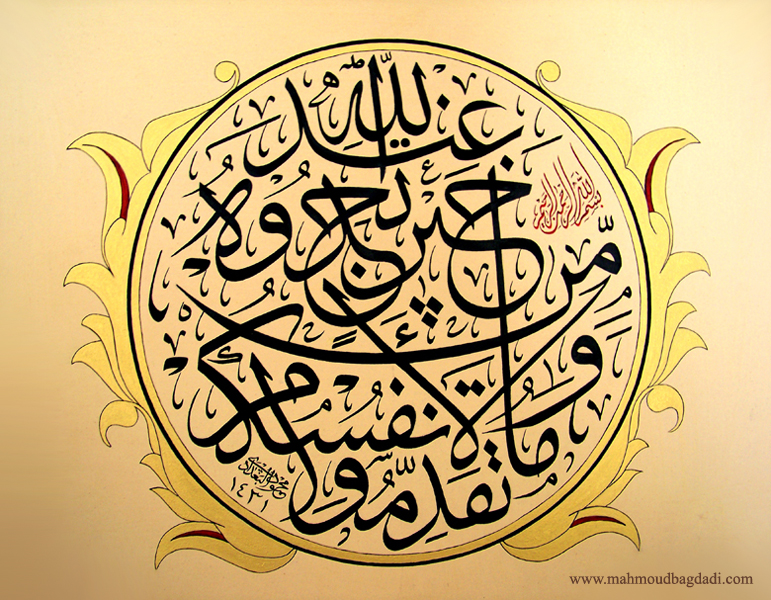 بسم الله الرحمن الرحيم
وَمَا تُقَدِّمُوا
لِأَنفُسِكُم
مِّنْ خَيْرٍ تَجِدُوهُ
عِندَ اللَّهِ
محمود البغدادي
١٤٣١
www.mahmoudbagdadi.com